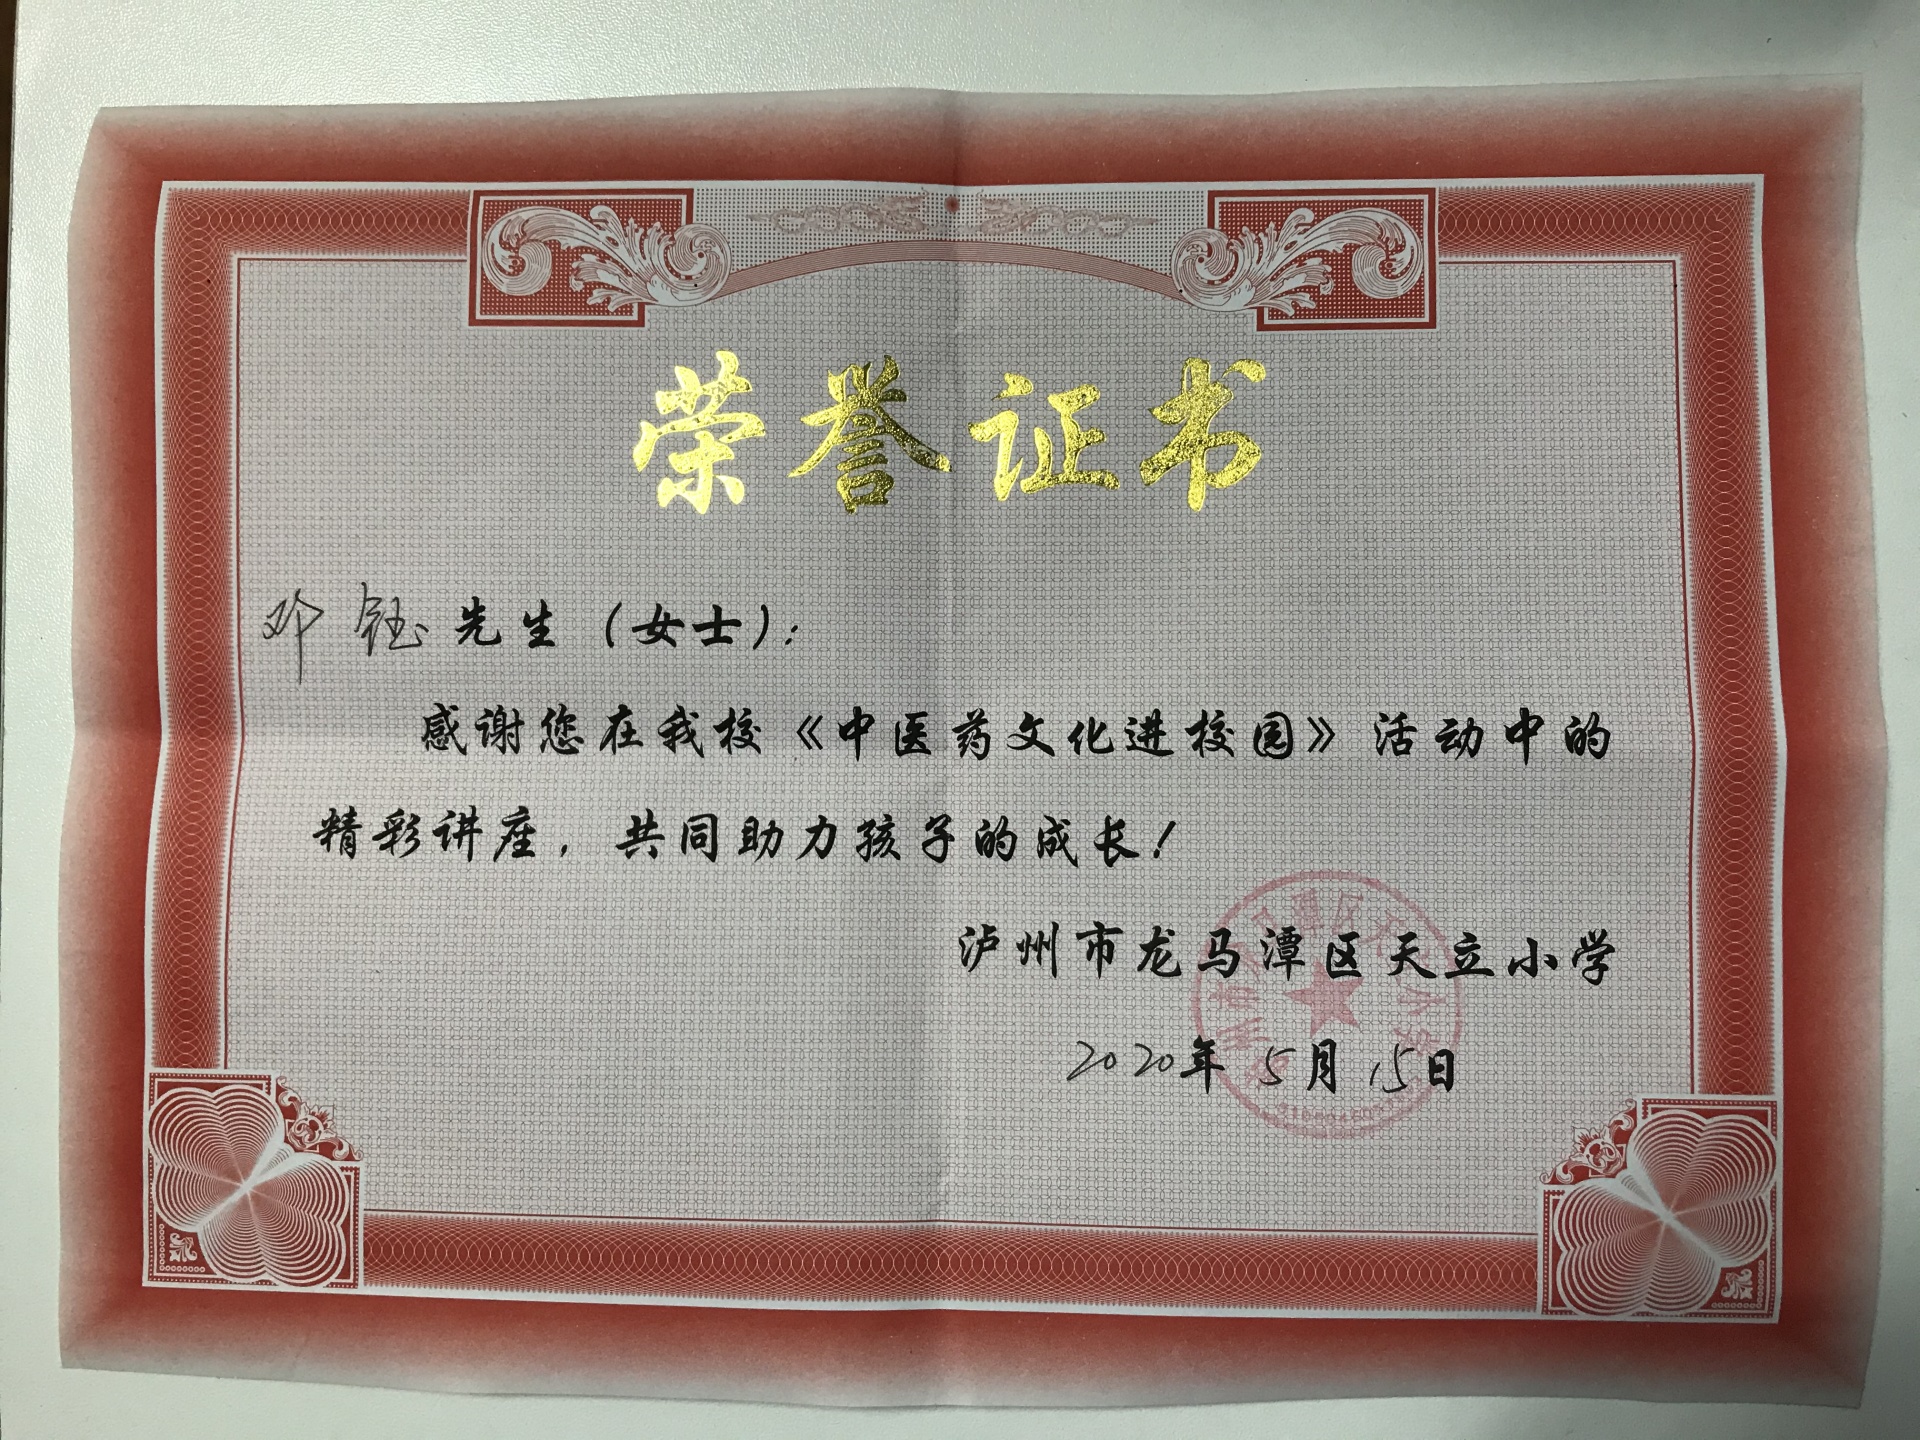 荣誉证书
邓钰先生（女士）：
感谢您在我校《中医药文化进校园》活动中的
精彩讲座，共同助力孩子的成长！
泸州市龙马潭区天立小学
2020年5月15日